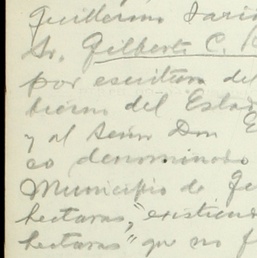 Guillermo
Sr. Gilberto C.
por escritura del
bierno del Estad
y al Señor Don E
co denominado
Municipio de
hectaras, existiend
hectaras" que no f